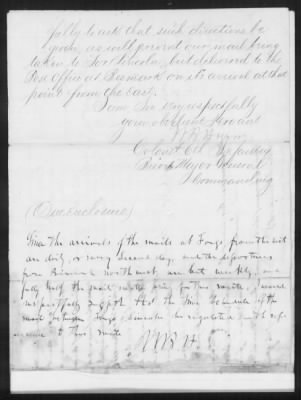 fully to ask that such directions be
given, as will prevent our mail being
taken to Fort Lincoln, but delivered to the
Post Office at Bismarck on its arrival at that
point from the East.
I am, Sir, very respectfully
your obedient servant
Colonel 6th Infantry
Brevet Major General
Commanding
(One enclosure)
Since the arrivals of the mails at Fargo from the east
are daily, or every second day, and the departures
from Bismarck northwest are but weekly, and
fully half the mail matter goes for this route, I would
respectfully suggest that the time schedule of the
mail between Fargo & Lincoln be regulated with ref-
erence to this route
WBH